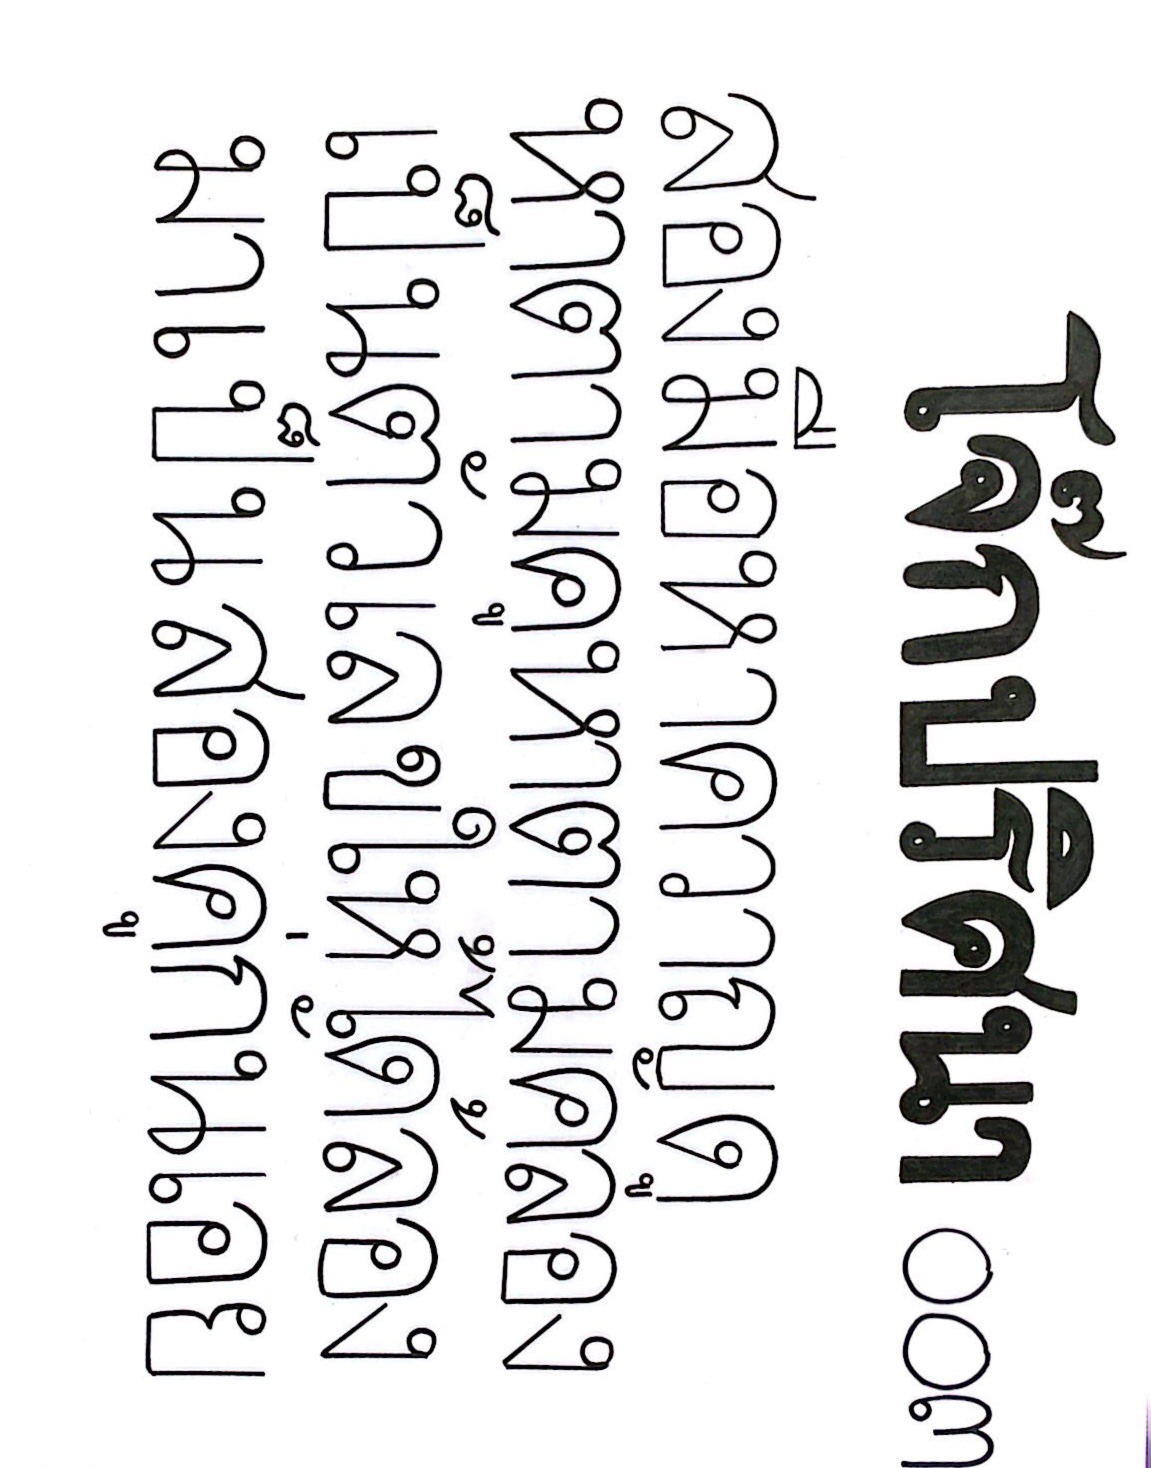 โจ๊กปริศนา ๐๐๓
สองมือหาควาญดู
หาตามคูหาตามคัลอง
เป็นตัวเลขให้ได้ลอง
มาเป็นสองคู่กันเอย